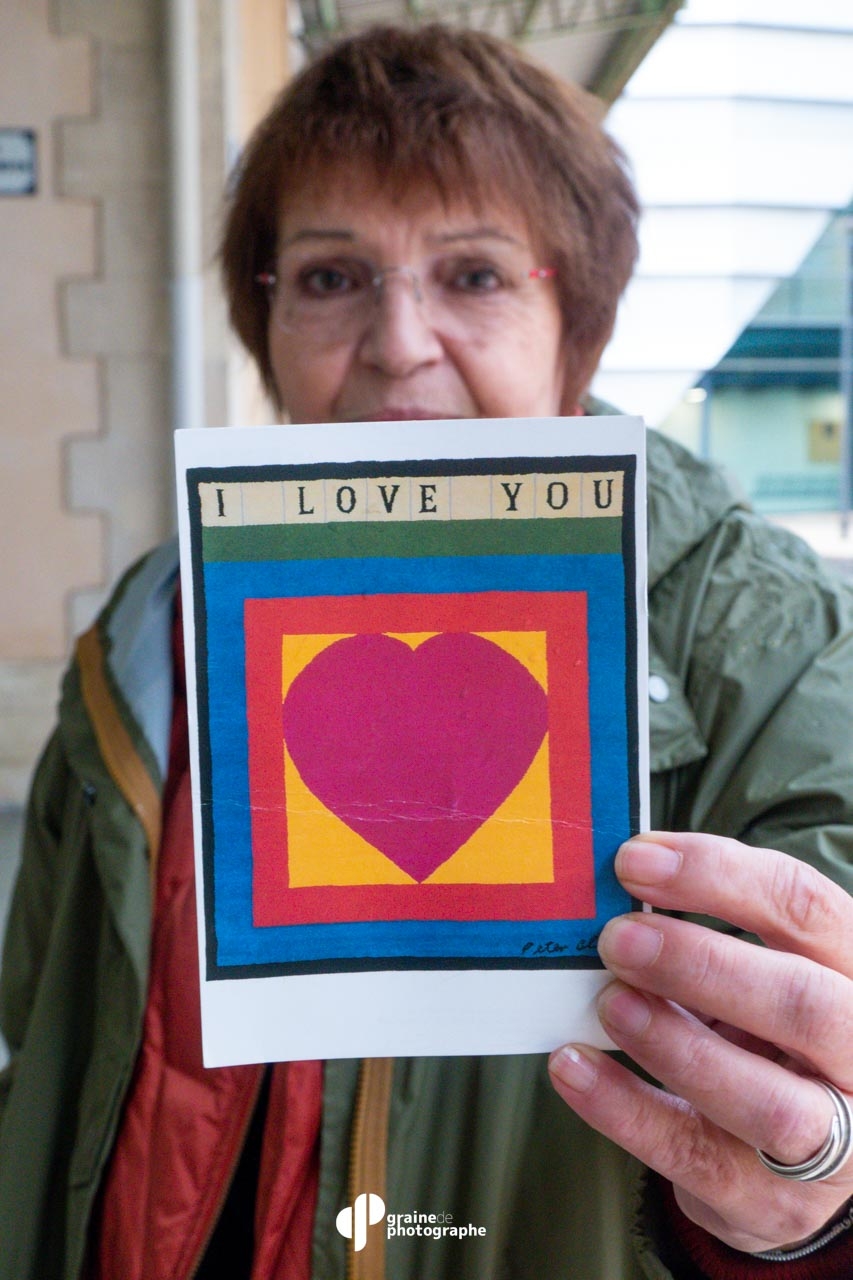 I LOVE YOU
Peter
grainede
photographe